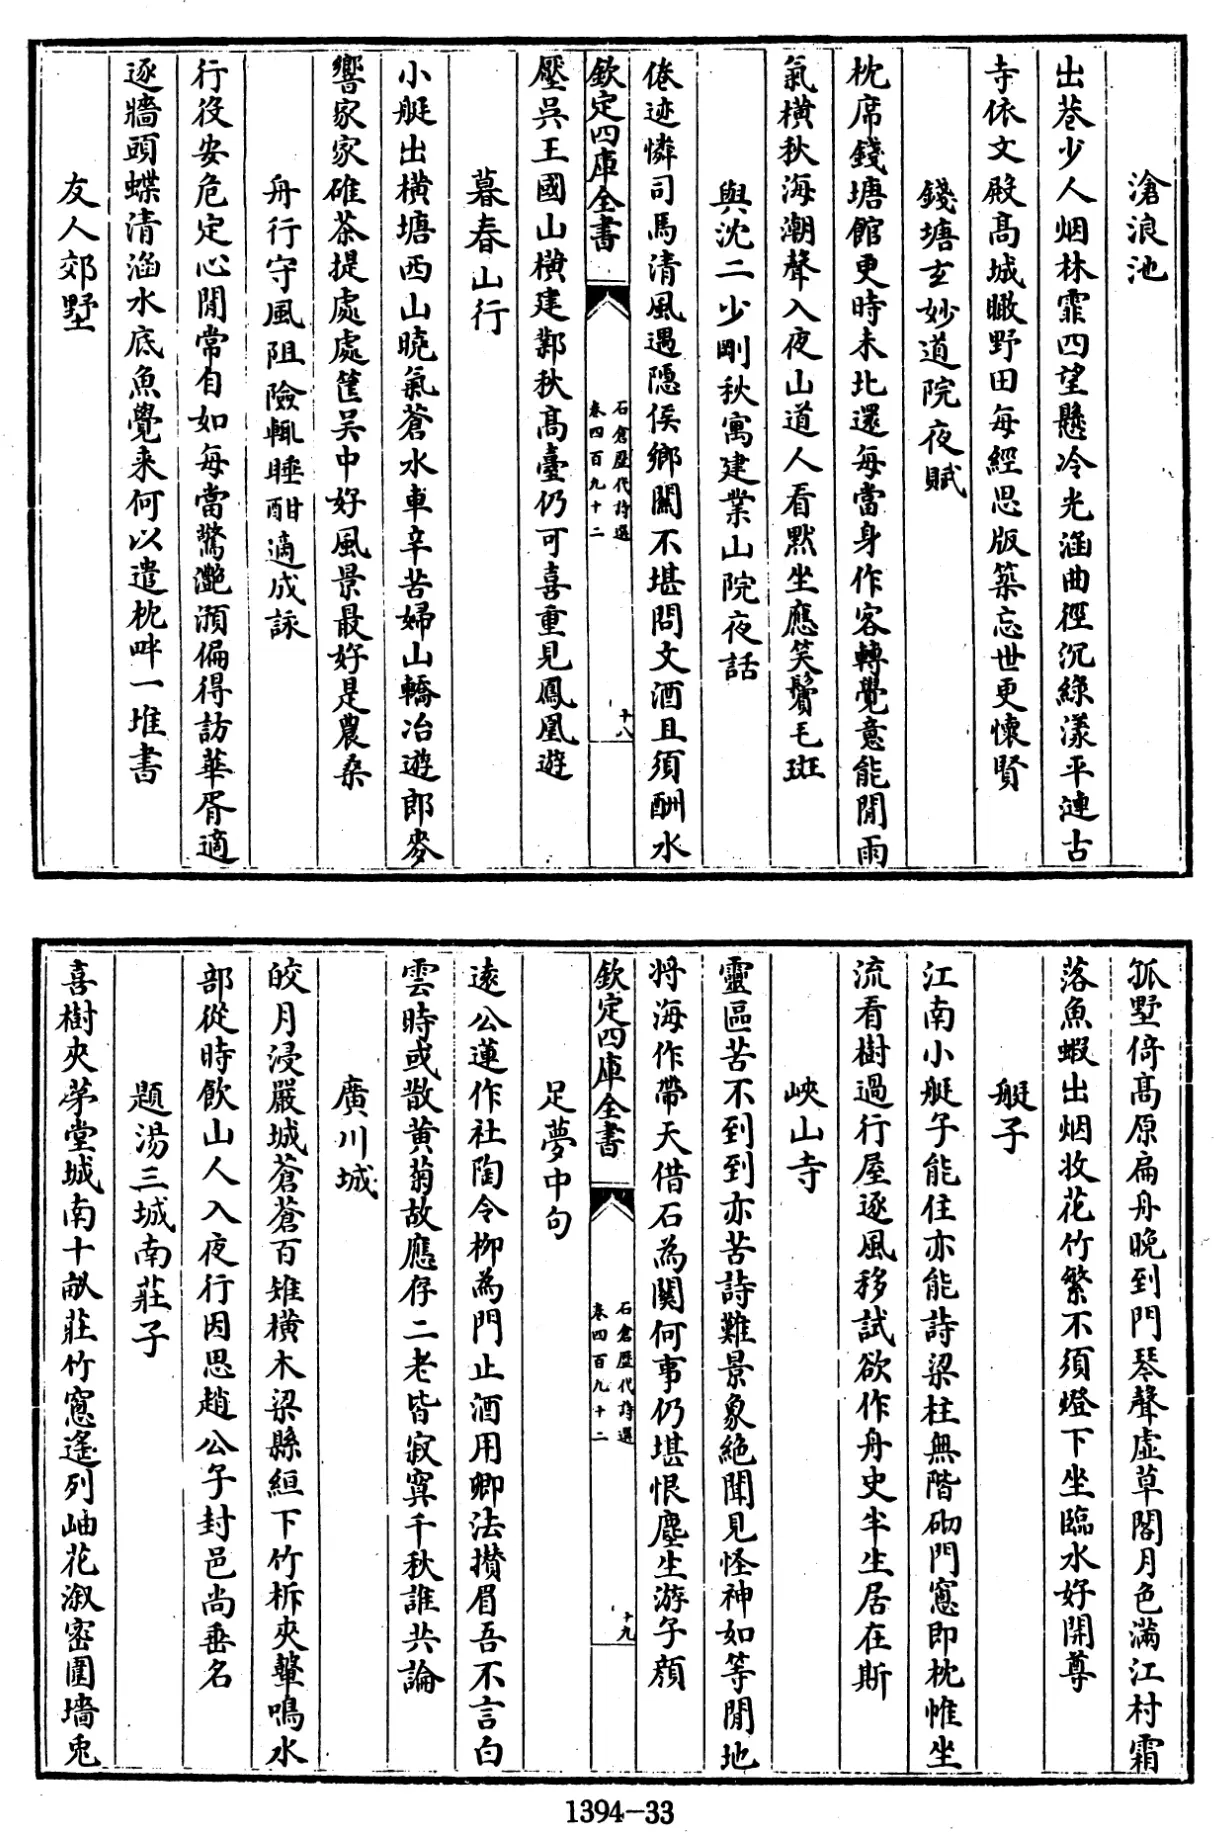 滄浪池
出巷少人烟林霏四望懸冷光涵曲徑沉綠漾平漣古
寺依文殿高城瞰野田每經思版築忘世更懷賢
錢塘玄妙道院夜賦
枕席錢塘館更時未北還每當身作客轉覺意能閒雨
氣橫秋海潮聲入夜山道人看默坐應笑鬢毛斑
與沈二少剛秋寓建業山院夜話
倦迹憐司馬清風遇隱侯鄉關不堪問文酒且須酬水
欽定四庫全書
石倉歷代詩選
卷四百九十二
十八
壓吳王國山橫建鄴秋高臺仍可喜重見鳳凰遊
暮春山行
小艇出橫塘西山曉氣蒼水車辛苦婦山轎冶遊郎麥
響家家碓茶提處處筐吳中好風景最好是農桑
舟行守風阻險輒睡酣適成詠
行役安危定心閒常自如每當驚灧澦偏得訪華胥適
逐牆頭蝶清涵水底魚覺来何以遣枕畔一堆書
友人郊墅
孤墅倚高原扁舟晚到門琴聲虛草閣月色滿江村霜
落魚蝦出烟收花竹繁不須燈下坐臨水好開尊
艇子
江南小艇子能住亦能詩梁柱無階砌門窻即枕帷坐
流看樹過行屋逐風移試欲作舟史半生居在斯
峽山寺
靈區苦不到到亦苦詩難景象絶聞見怪神如等閒地
将海作帶天借石為關何事仍堪恨塵生游子顏
欽定四庫全書
石倉歷代詩選
卷四百九十二
十九
足夢中句
遠公蓮作社陶令柳為門止酒用卿法攅眉吾不言白
雲時或散黄菊故應存二老皆寂寞千秋誰共論
廣川城
皎月浸嚴城蒼蒼百雉橫木梁縣絙下竹柝夾鼙鳴水
部從時飲山人入夜行因思趙公子封邑尚垂名
題湯三城南莊子
喜樹夾茅堂城南十畝莊竹窻遙列岫花溆密圍墻兎
1394-33